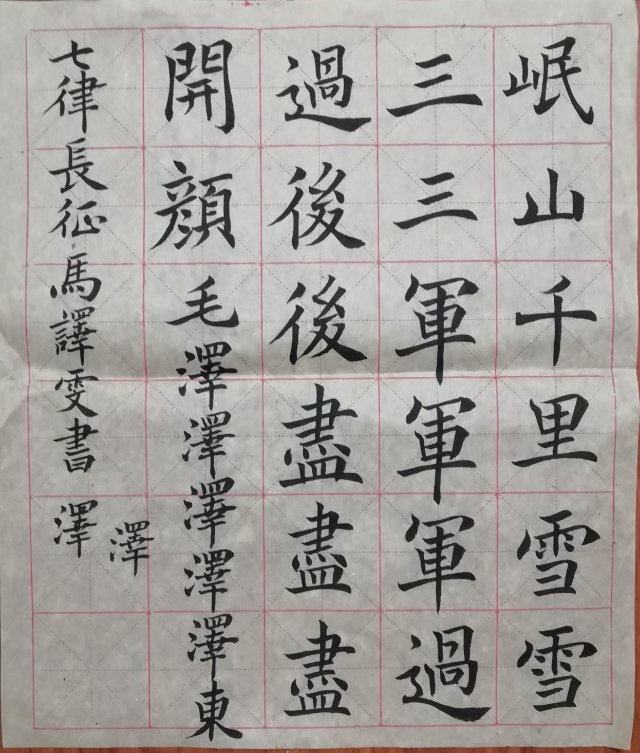 岷山千里雪雪
三三軍軍軍過
過後後盡盡盡
開顏毛澤澤澤澤澤東
七律長征馬譯雯書澤
澤